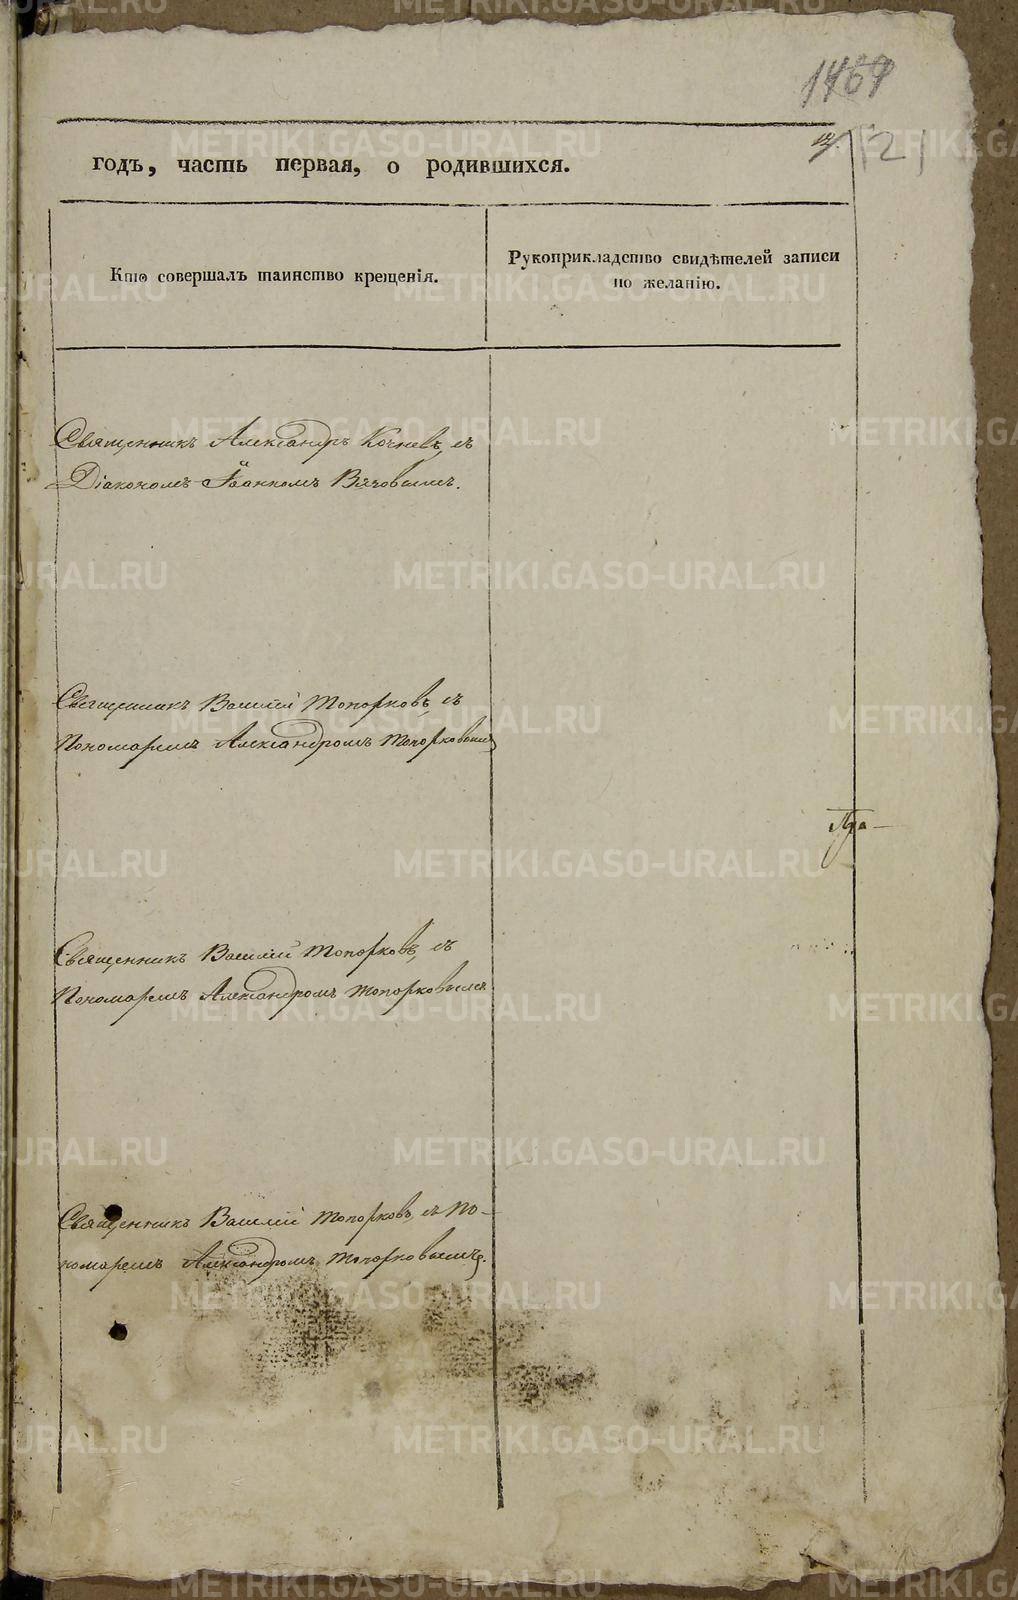 1469
12
годъ, часть первая, о родившихся.
Кто совершалъ таинство крещенія.
Рукоприкладство свидѣтелей записи
по желанію.
Священникъ Александръ Кочневъ, съ
Діакономъ Іоанномъ Вяювымъ.
Священникъ Василій Топорковъ, съ
Пономаремъ Александромъ Топорковымъ
Священникъ Василій Топорковъ, съ
Пономаремъ Александромъ Топорковымъ
Священникъ Василій Топорковъ, съ По-
номаремъ Александромъ Топорковымъ.
METRIKI.GASO-URAL.RU